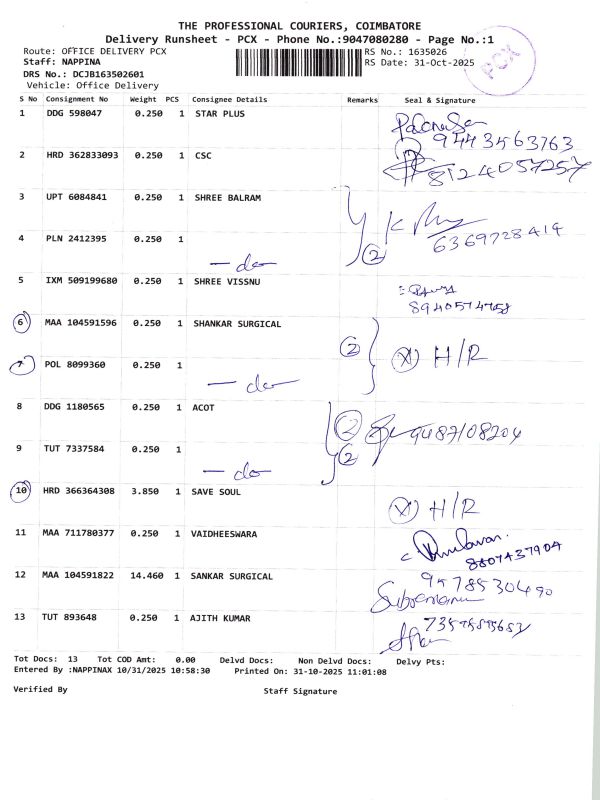 THE PROFESSIONAL COURIERS, COIMBATORE
Delivery Runsheet - PCX - Phone No.:9047080280 - Page No.:1
Route: OFFICE DELIVERY PCX RS No.: 1635026
Staff: NAPPINA RS Date: 31-Oct-2025
PCX
DRS No.: DCJB163502601
Vehicle: Office Delivery
S No Consignment No Weight PCS Consignee Details Remarks Seal & Signature
1 DDG 598047 0.250 1 STAR PLUS
9443563763
2 HRD 362833093 0.250 1 CSC
8124057257
3 UPT 6084841 0.250 1 SHREE BALRAM
6369728414
4 PLN 2412395 0.250 1 — do — 2
5 IXM 509199680 0.250 1 SHREE VISSNU
8940574758
6 MAA 104591596 0.250 1 SHANKAR SURGICAL
2 X H/R
7 POL 8099360 0.250 1 — do —
8 DDG 1180565 0.250 1 ACOT
2 9487108204
9 TUT 7337584 0.250 1 — do — 2
10 HRD 366364308 3.850 1 SAVE SOUL X H/R
11 MAA 711780377 0.250 1 VAIDHEESWARA
8807437904
12 MAA 104591822 14.460 1 SANKAR SURGICAL 9578530490
13 TUT 893648 0.250 1 AJITH KUMAR
Tot Docs: 13 Tot COD Amt: 0.00 Delvd Docs: Non Delvd Docs: Delvy Pts:
Entered By :NAPPINAX 10/31/2025 10:58:30 Printed On: 31-10-2025 11:01:08
Verified By Staff Signature